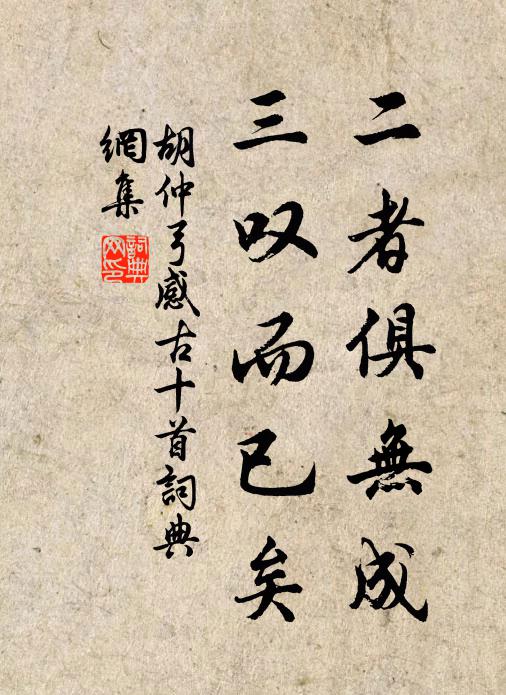 二者俱無成
三叹而已矣
胡仲弓感古十首詞典
網集
詞典网印